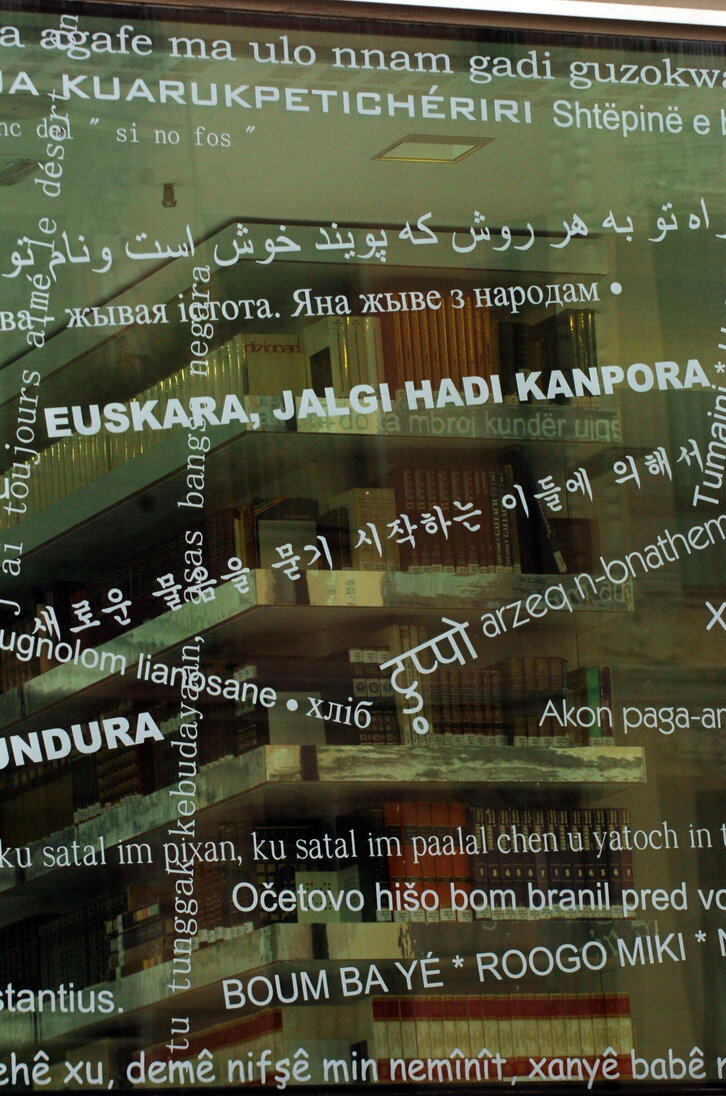 agafe ma ulo nnam gadi guzokwa
KUARUKPETICHÉRIRI Shtëpinë e
del " si no fos "
راه تو به هر روش که پویند خوش است ونام تو
жывая істота. Яна жыве з народам •
dizionari
EUSKARA, JALGI HADI KANPORA
do ta mbroj kundër
Tumaini
새로운 물음을 묻기 시작하는 이들에 의해서
arzeq n-bnathem
lianosane • хліб
Akon paga-
UNDURA
J'ai toujours aimé le désert
tu tunggak kebudayaan, asas bangsa negara
ku satal im pixan, ku satal im paalal chen u yatoch in
Očetovo hišo bom branil pred
stantius.
BOUM BA YÉ * ROOGO MIKI *
xu, demê nifşê min nemînît, xanyê babê